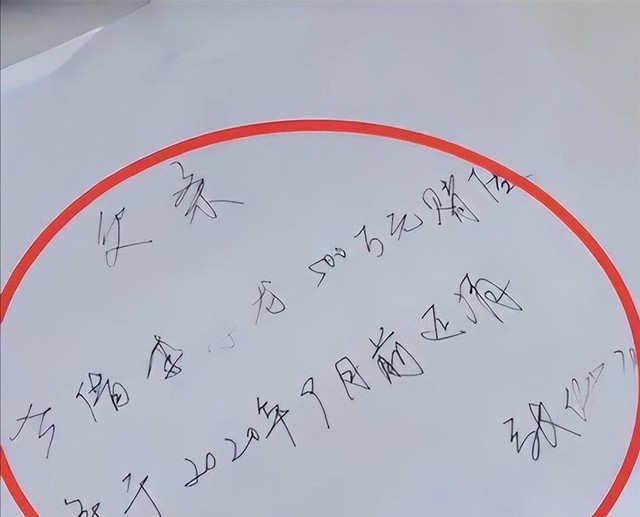 欠条
今借李龙500万元赌
于2020年9月前还清
张